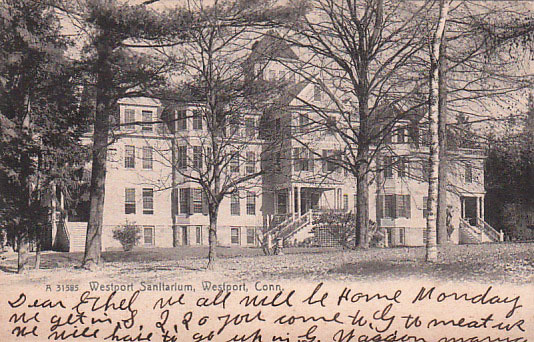 A 31585 Westport Sanitarium, Westport, Conn.
Dear Ethel we all will be Home Monday
we get in G, 2,20 you come to G to meat us
we will have to go up in G. Wasson mama